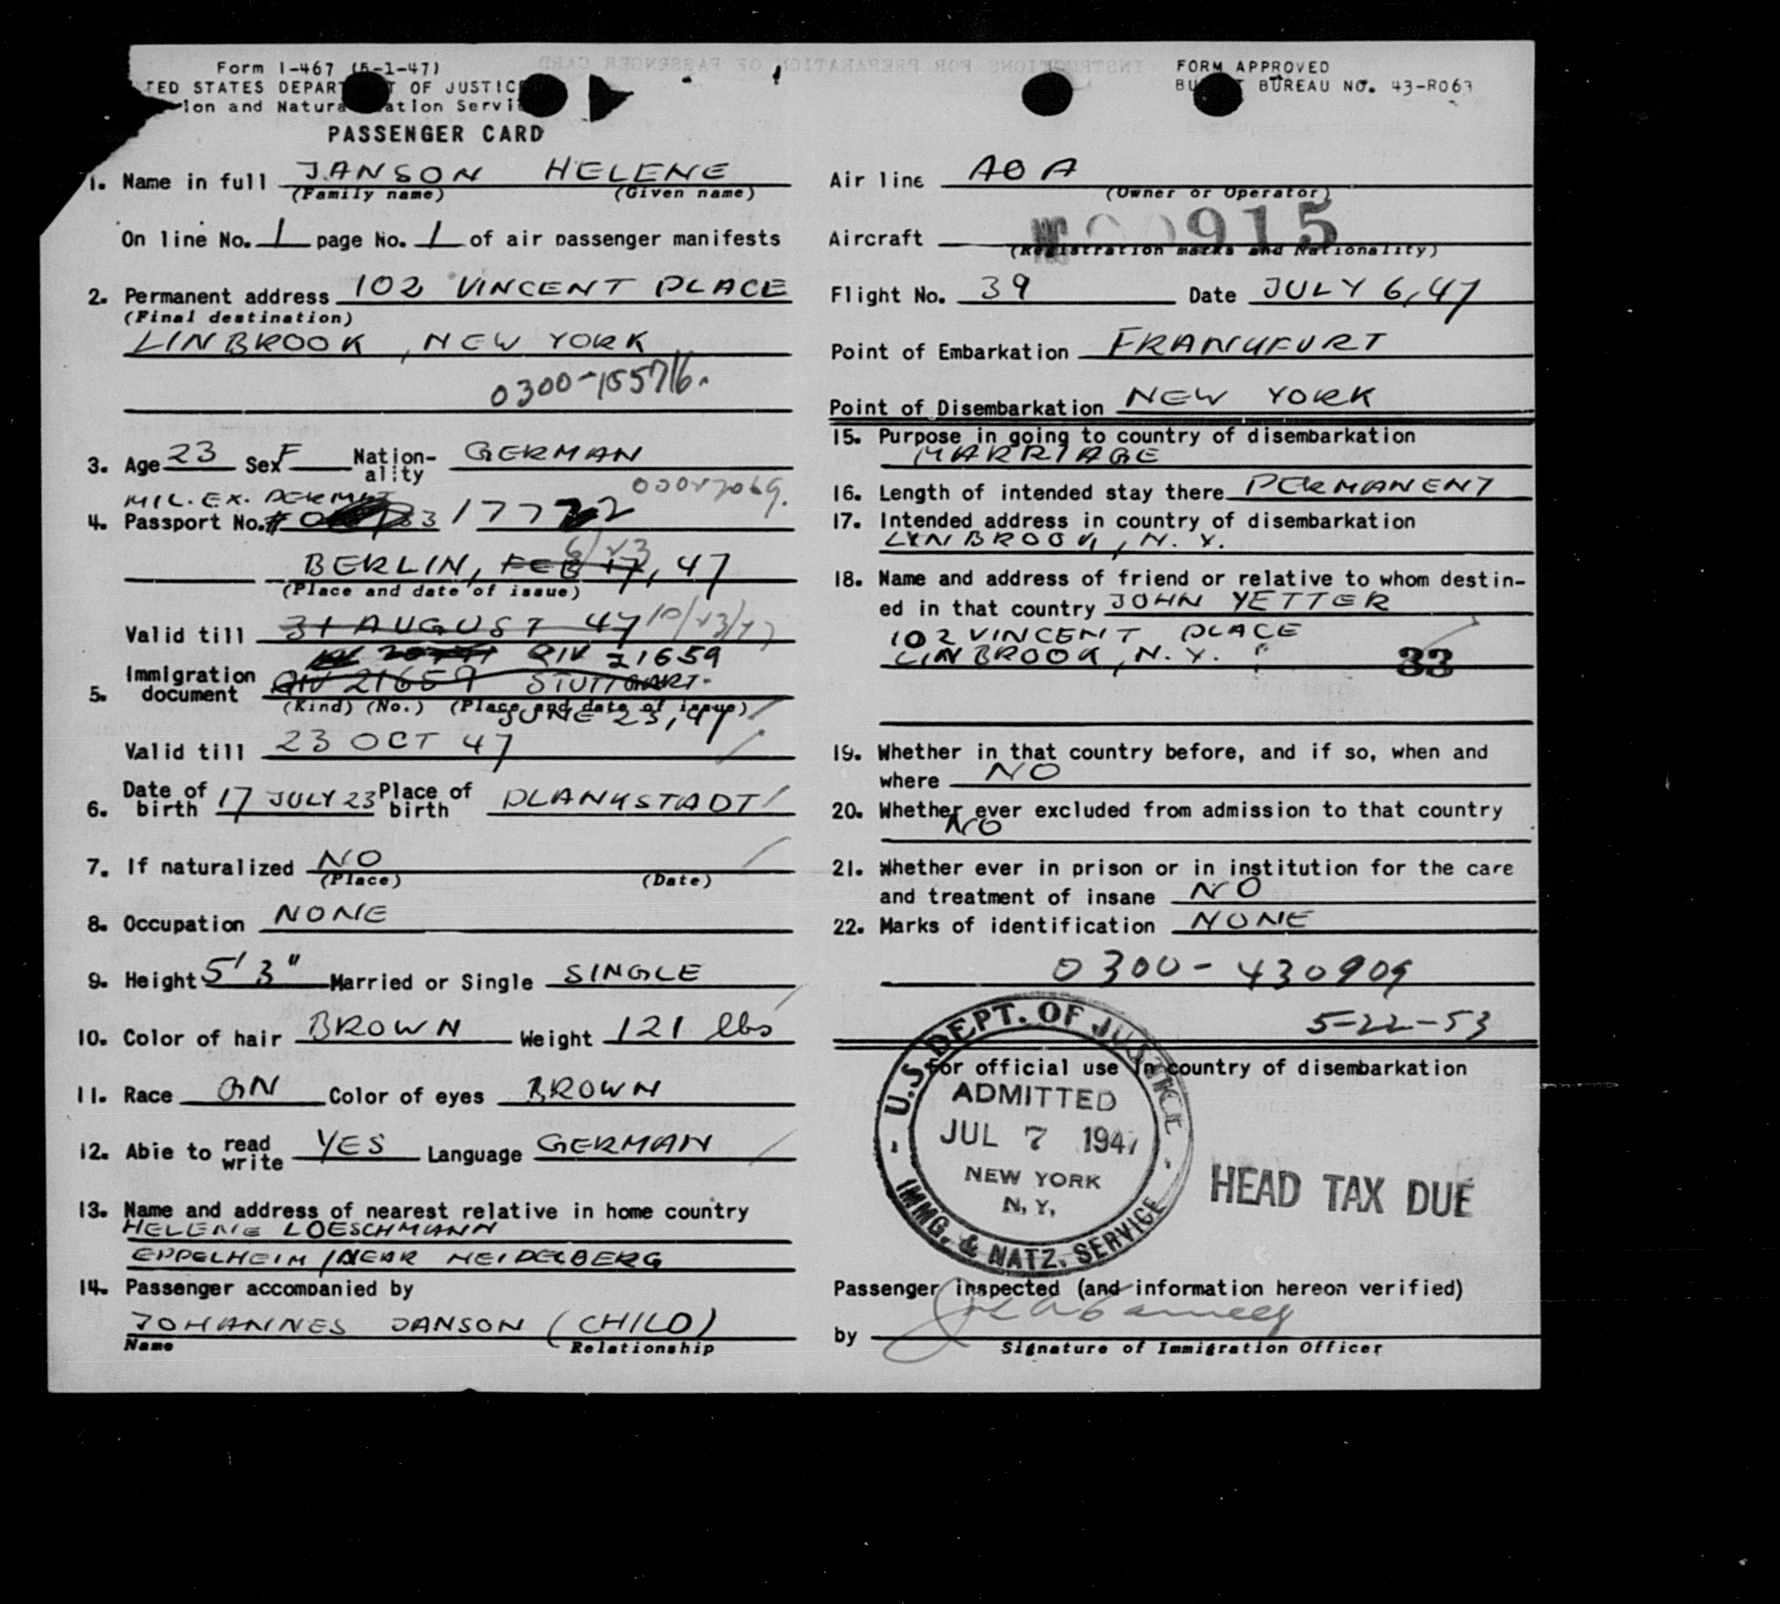 Form I-467 (6-1-47)
TED STATES DEPAR T OF JUSTIC
ion and Natura ation Servi
PASSENGER CARD
1. Name in full JANSON HELENE
(Family name) (Given name)
On line No. 1 page No. 1 of air passenger manifests
2. Permanent address 102 VINCENT PLACE
(Final destination)
LINBROOK, NEW YORK
0300-155716.
3. Age 23 Sex F Nation-ality GERMAN
MIL. EX. PERMIT
4. Passport No. # 17772
BERLIN, FEB 17, 47
(Place and date of issue)
Valid till 31 AUGUST 47 10/23/47
QIV 21659
5. Immigration document QIV 21659 STUTTGART.
(Kind) (No.) (Place and date of issue)
JUNE 23, 47
Valid till 23 OCT 47
6. Date of birth 17 JULY 23 Place of birth PLANKSTADT
7. If naturalized NO
(Place) (Date)
8. Occupation NONE
9. Height 5' 3" Married or Single SINGLE
10. Color of hair BROWN Weight 121 lbs
11. Race GN Color of eyes BROWN
12. Able to read write YES Language GERMAN
13. Name and address of nearest relative in home country
HELENE LOESCHMANN
EPPELHEIM / NEAR HEIDELBERG
14. Passenger accompanied by
JOHANNES JANSON (CHILD)
Name Relationship
FORM APPROVED
BU T BUREAU NO. 43-R063
Air line AOA
(Owner or Operator)
915
Aircraft
(Registration marks and Nationality)
Flight No. 39 Date JULY 6, 47
Point of Embarkation FRANKFURT
Point of Disembarkation NEW YORK
15. Purpose in going to country of disembarkation
MARRIAGE
16. Length of intended stay there PERMANENT
17. Intended address in country of disembarkation
LYNBROOK, N. Y.
18. Name and address of friend or relative to whom destin-
ed in that country JOHN YETTER
102 VINCENT PLACE
LINBROOK, N. Y. 33
19. Whether in that country before, and if so, when and
where NO
20. Whether ever excluded from admission to that country
NO
21. Whether ever in prison or in institution for the care
and treatment of insane NO
22. Marks of identification NONE
0300-430909
5-22-53
For official use in country of disembarkation
U.S. DEPT. OF JUSTICE
ADMITTED
JUL 7 1947
NEW YORK
N.Y.
IMMG. & NATZ. SERVICE
HEAD TAX DUE
Passenger inspected (and information hereon verified)
by
Signature of Immigration Officer